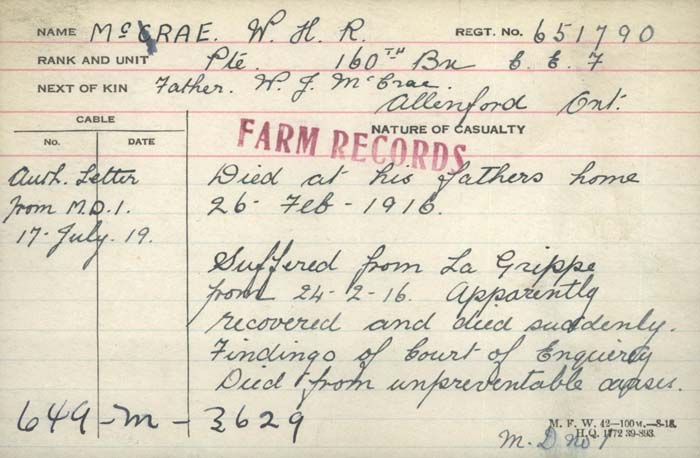 NAME McCRAE. W. H. R. REGT. NO. 651790
RANK AND UNIT Pte. 160TH Bn C. E. F
NEXT OF KIN Father. W. J. McCrae.
Allenford Ont.
CABLE
NO. DATE
NATURE OF CASUALTY
FARM RECORDS
Auth. Letter
from M.D.1.
17-July.19.
Died at his fathers home
26-Feb-1916.
Suffered from La Grippe
from 24-2-16. Apparently
recovered and died suddenly.
Findings of Court of Enquirey
Died from unpreventable causes.
649-M-3629
M. F. W. 42—100M.—8-18.
H.Q. 1772 39-893.
M. D no 1